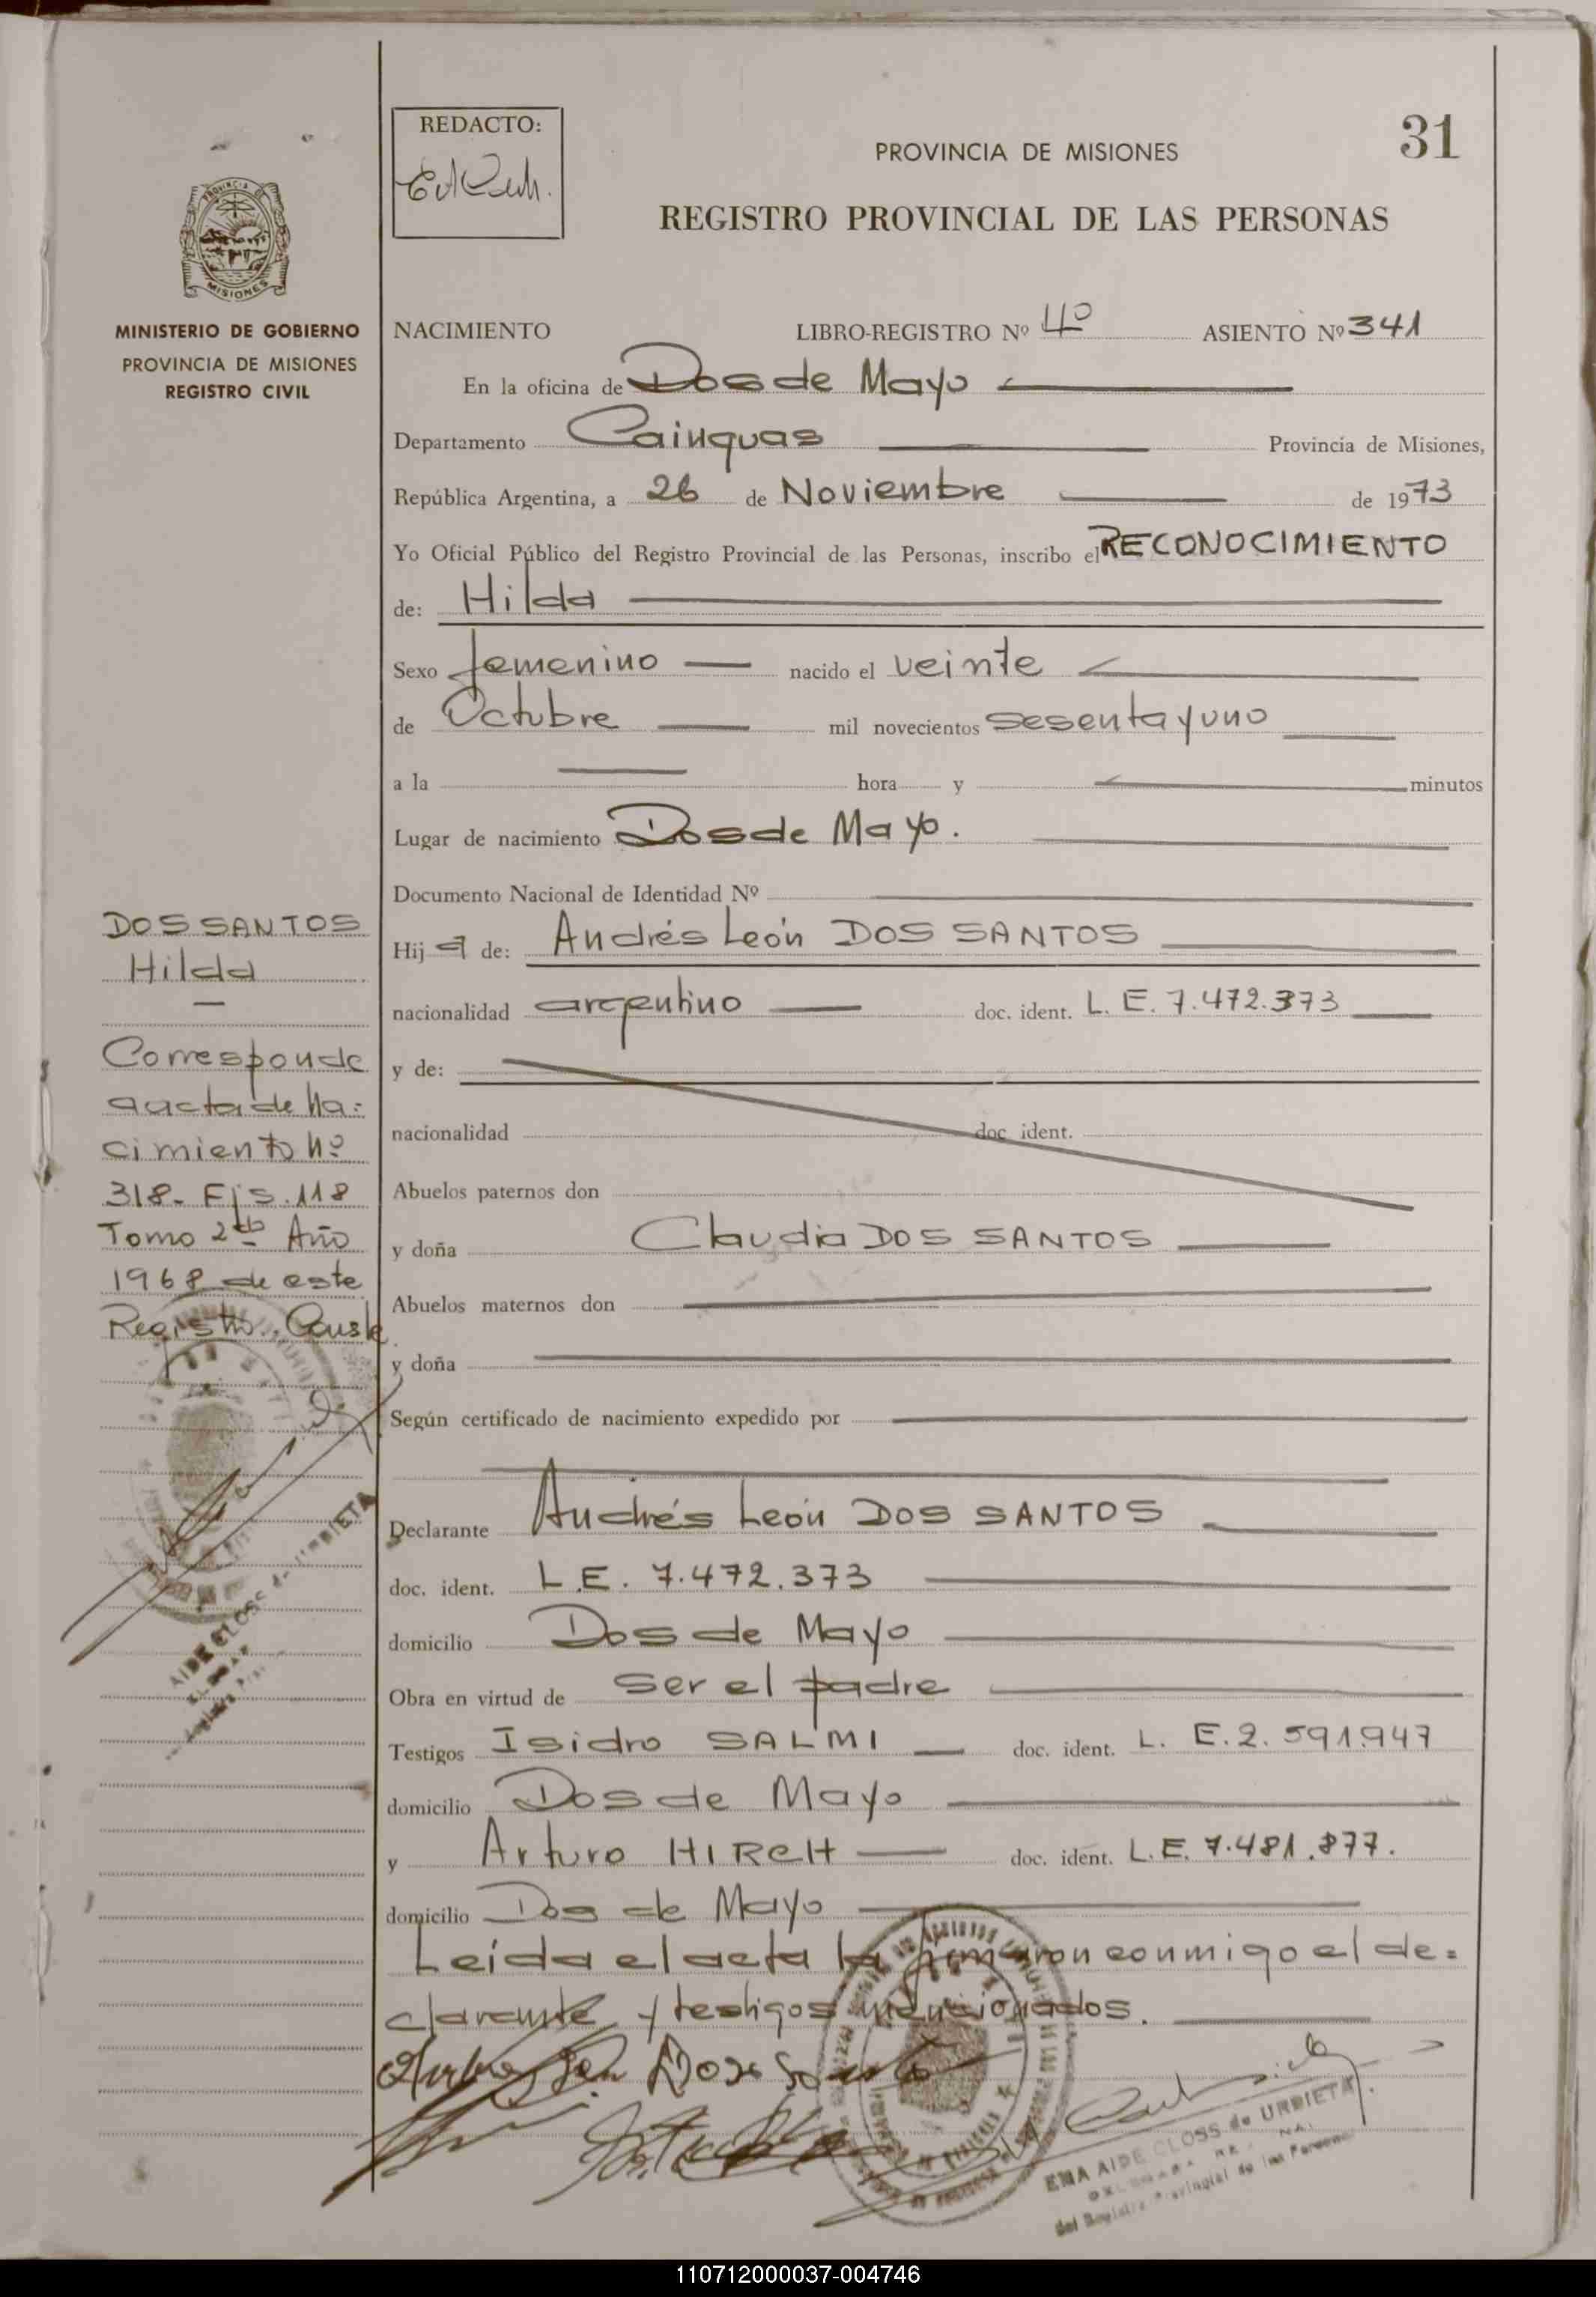 REDACTO:
31
PROVINCIA DE MISIONES
REGISTRO PROVINCIAL DE LAS PERSONAS
PROVINCIA DE
MISIONES
MINISTERIO DE GOBIERNO
PROVINCIA DE MISIONES
REGISTRO CIVIL
NACIMIENTO LIBRO-REGISTRO Nº 4º ASIENTO Nº 341
En la oficina de Dos de Mayo
Departamento Cainguas Provincia de Misiones,
República Argentina, a 26 de Noviembre de 1973
Yo Oficial Público del Registro Provincial de las Personas, inscribo el RECONOCIMIENTO
de: Hilda
Sexo femenino nacido el veinte
de Octubre mil novecientos sesenta y uno
a la hora y minutos
Lugar de nacimiento Dos de Mayo.
Documento Nacional de Identidad Nº
Hij a de: Andrés León DOS SANTOS
nacionalidad argentino doc. ident. L. E. 7.472.373
y de:
nacionalidad doc. ident.
Abuelos paternos don
y doña Claudia DOS SANTOS
Abuelos maternos don
y doña
Según certificado de nacimiento expedido por
Declarante Andrés León DOS SANTOS
doc. ident. L.E. 7.472.373
domicilio Dos de Mayo
Obra en virtud de ser el padre
Testigos Isidro SALMI doc. ident. L. E. 2.591.947
domicilio Dos de Mayo
y Arturo HIRCH doc. ident. L.E. 7.481.877.
domicilio Dos de Mayo
Leída el acta la firmaron conmigo el de=
clarante y testigos mencionados.
DOS SANTOS
Hilda
Corresponde
a acta de Na=
cimiento Nº
318- Fjs. 118
Tomo 2do Año
1968 de este
Registro. Conste
AIDE CLOSS de URDIETA
EMA AIDE CLOSS de URDIETA
del Registro Provincial de las Personas
110712000037-004746